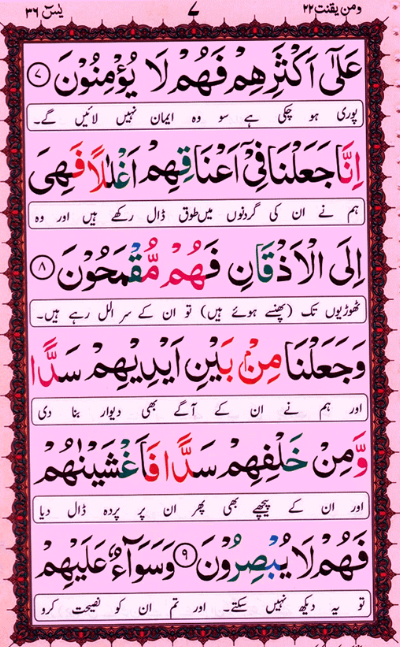 ومن یقنت ۲۲ ۷ یٰسٓ ۳۶
عَلٰۤی اَکْثَرِهِمْ فَهُمْ لَا یُؤْمِنُوْنَ ۷
پوری ہو چکی ہے سو وہ ایمان نہیں لائیں گے۔
اِنَّا جَعَلْنَا فِیْۤ اَعْنَاقِهِمْ اَغْلٰلًا فَهِیَ
ہم نے ان کی گردنوں میں طوق ڈال رکھے ہیں اور وہ
اِلَی الْاَذْقَانِ فَهُمْ مُّقْمَحُوْنَ ۸
ٹھوڑیوں تک (پھنسے ہوئے ہیں) تو ان کے سر الل رہے ہیں۔
وَجَعَلْنَا مِنْۢ بَیْنِ اَیْدِیْهِمْ سَدًّا
اور ہم نے ان کے آگے بھی دیوار بنا دی
وَّمِنْ خَلْفِهِمْ سَدًّا فَاَغْشَیْنٰهُمْ
اور ان کے پیچھے بھی پھر ان پر پردہ ڈال دیا
فَهُمْ لَا یُبْصِرُوْنَ ۹ وَسَوَآءٌ عَلَیْهِمْ
تو یہ دیکھ نہیں سکتے۔ اور تم ان کو نصیحت کرو